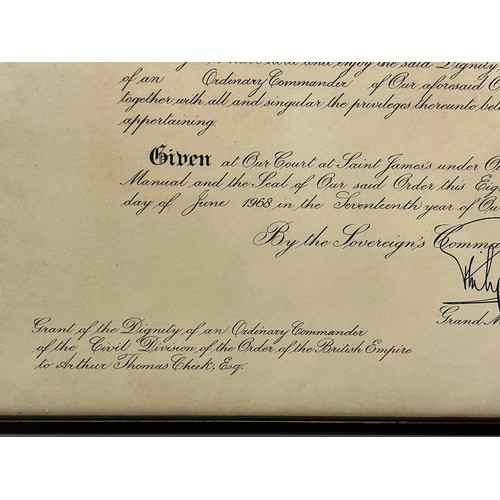 and enjoy the said Dignity
of an Ordinary Commander of Our aforesaid O
together with all and singular the privileges thereunto be
appertaining.
Given at Our Court at Saint James's under O
Manual and the Seal of Our said Order this Eig
day of June 1968 in the Seventeenth year of Ou
By the Sovereign's Comma
Philip
Grand M
Grant of the Dignity of an Ordinary Commander
of the Civil Division of the Order of the British Empire
to Arthur Thomas Cheek, Esq.